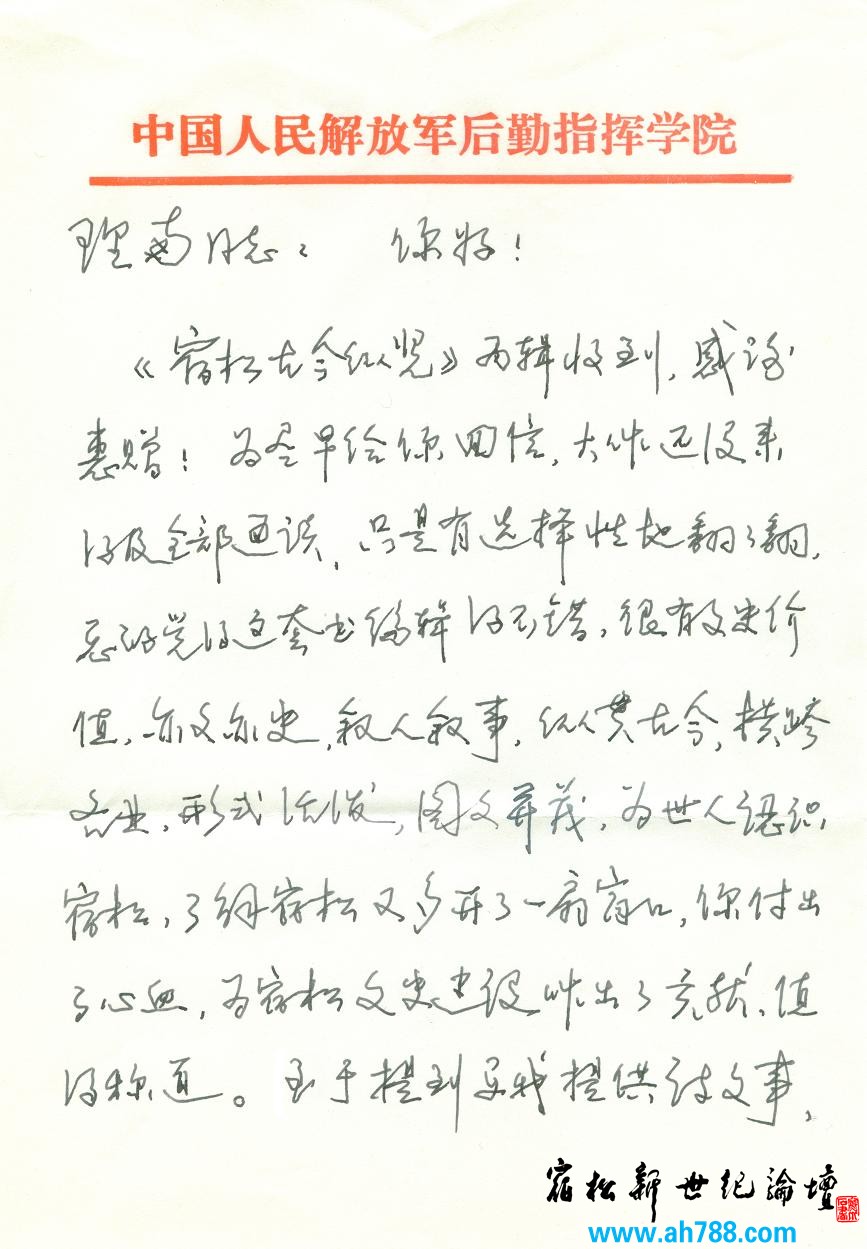 中国人民解放军后勤指挥学院
理南同志： 你好！
《宿松古今纵览》两辑收到，感谢
惠赠！为尽早给你回信，大作还没来
得及全部通读，只是有选择性地翻了翻，
总的觉得这套书编辑得不错，很有文史价
值，亦文亦史，叙人叙事，纵贯古今，横跨
各业，形式活泼，图文并茂，为世人认识
宿松，了解宿松又多开了一扇窗口，你付出
了心血，为宿松文史建设作出了贡献，值
得称道。至于提到要我提供诗文事，
宿松新世纪論壇
www.ah788.com